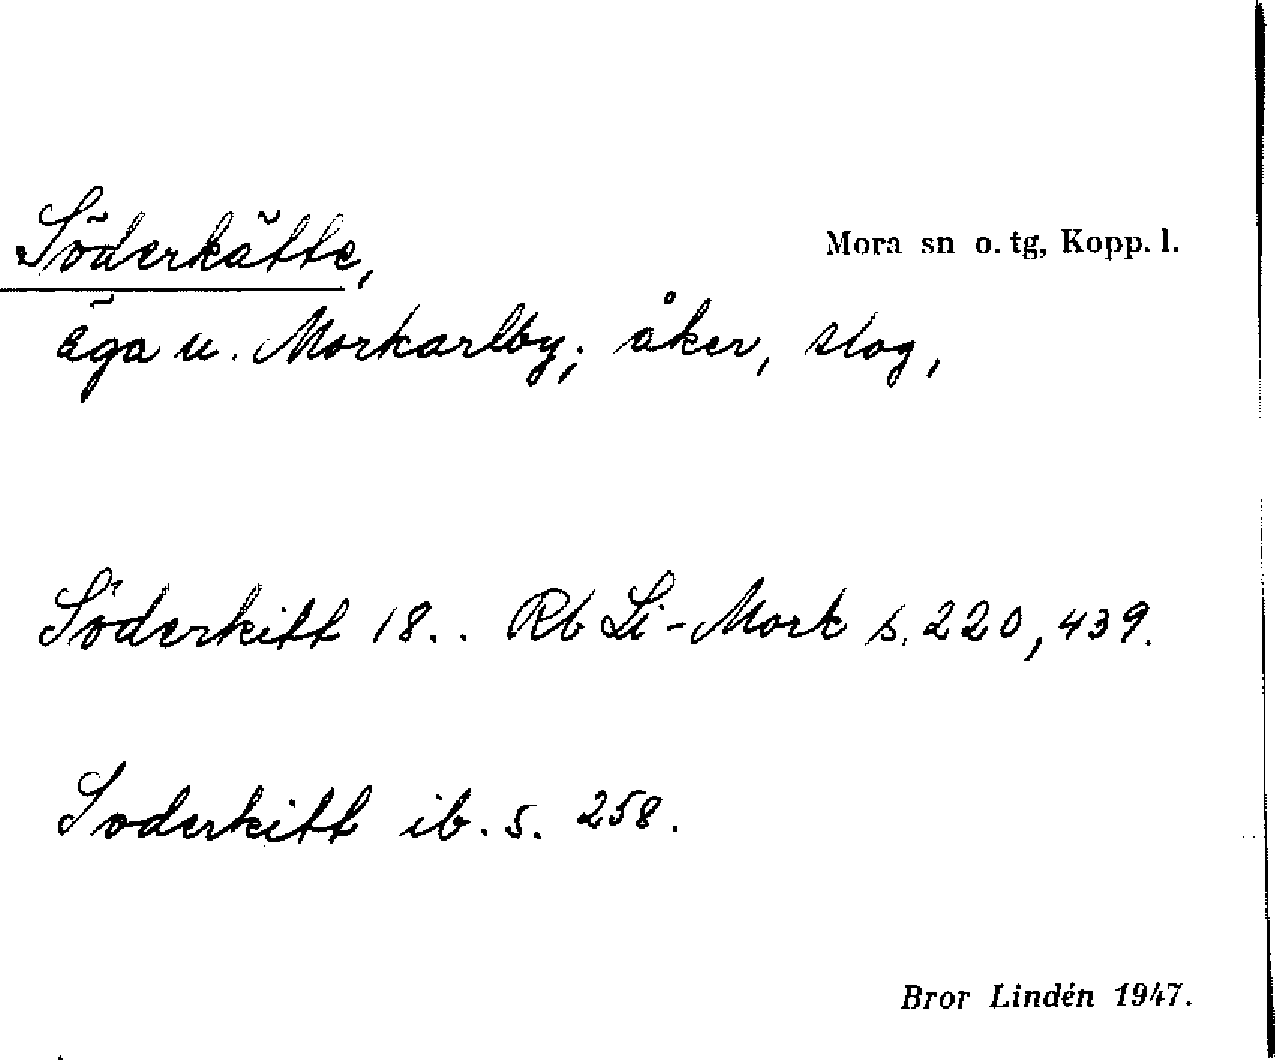 Söderkätte,
Mora sn o. tg, Kopp. l.
äga u. Morkarlby; åker, slog,
Söderkitt 18.. Rb Li-Mork s. 220, 439.
Soderkitt ib. s. 258.
Bror Lindén 1947.